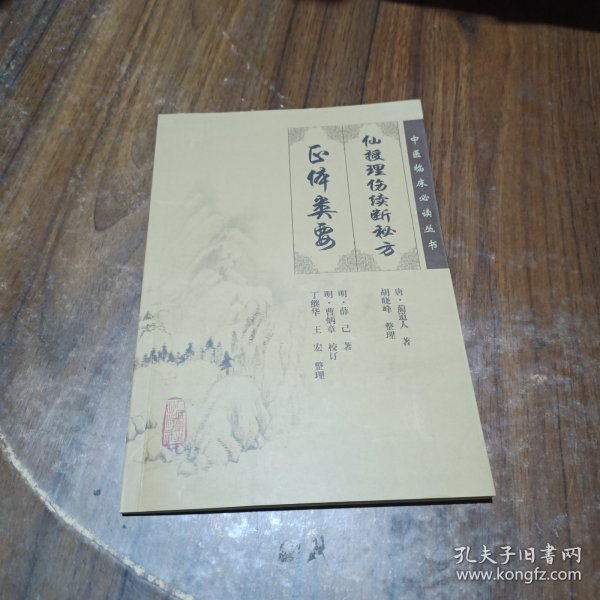 中医临床必读丛书
仙授理伤续断秘方
正体类要
唐·蔺道人 著
胡晓峰 整理
明·薛己 著
明·曹炳章 校订
丁继华 王宏 整理
孔夫子旧书网
www.kongfz.com